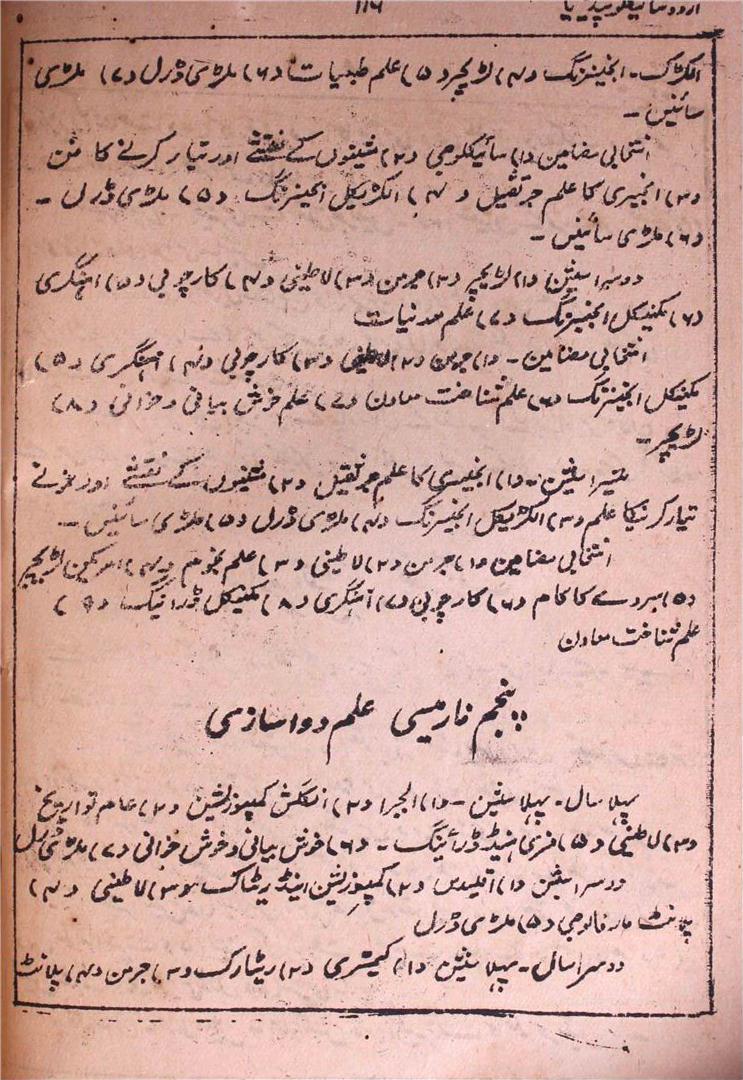 اردو سائیکلوپیڈیا ۱۱۶
الکٹرک۔ انجنیرنگ (۴) لٹریچر (۵) علم طبعیات (۶) ملٹری ڈرل (۷) ملٹری
سائنس ۔
انتخابی مضامین (۱) سائیکلوجی (۲) مشینوں کے نقشے اور تیار کرنے کا فن
(۳) انجنیری کا علم جر ثقیل (۴) الکڑیکل انجینرنگ (۵) ملڑی ڈرل ۔
(۶) ملڑی سائنس ۔
دوسرا سیشن (۱) لڑیچر (۲) جرمن (۳) لاطینی (۴) کارچوبی (۵) اہنگری
(۶) مکینیکل انجنیرنگ (۷) علم معدنیات
انتخابی مضامین ۔ (۱) جرمن (۲) لاطینی (۳) کارچوبی (۴) اہنگری (۵)
مکینکل انجنیرنگ (۶) علم شناخت معاون (۷) علم خوش بیانی و خوانی (۸)
لڑیچر ۔
تیسرا سیشن ۔ (۱) انجنیری کا علم جر ثقیل (۲) مشینوں کے نقشے اور نمونے
تیار کرنیکا علم (۳) الکڑیکل انجنیرنگ (۴) ملڑی ڈرل (۵) ملڑی سائنس ۔
انتخابی مضامین (۱) جرمن (۲) لاطینی (۳) علم نجوم (۴) امریکین لڑیچر
(۵) سروے کا کام (۶) کارچوبی (۷) آہنگری (۸) مکنیکل ڈرائینگ (۹)
علم شناخت معاون
پنجم فارمیسی علم دواسازی
پہلا سال ۔ پہلا سیشن ۔ (۱) الجبرا (۲) انگلش کمپوزیشن (۳) عام تواریخ
(۴) لاطینی (۵) فری ہینڈ ڈرائینگ ۔ (۶) خوش بیانی و خوش خوانی (۷) ملڑی ڈرل
دوسرا سیشن (۱) اقلیدس (۲) کمپوزیشن اینڈ ریٹارک (۳) لاطینی (۴)
پلانٹ مارفالوجی (۵) ملڑی ڈرل
دوسرا سال ۔ پہلا سیشن (۱) کیمسٹری (۲) ریٹارک (۳) جرمن (۴) پلانٹ